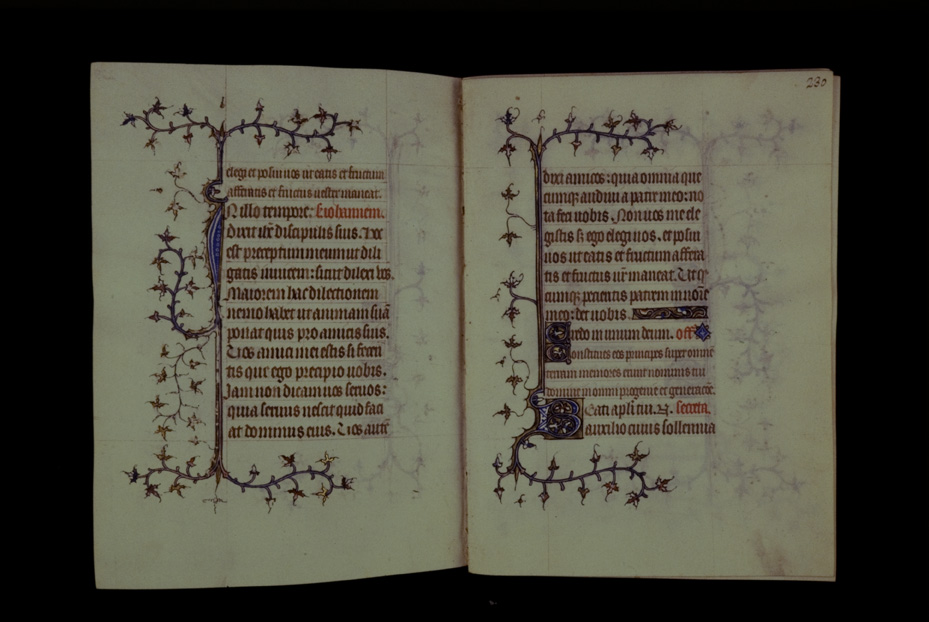 elegi et posui uos ut eatis et fructum
afferatis et fructus uester maneat.
N illo tempore. S. iohannem.
Dixit ihc discipulis suis. Hoc
est preceptum meum ut dili
gatis inuicem: sicut dilexi uos.
Maiorem hac dilectionem
nemo habet ut animam suā
ponat quis pro amicis suis.
Uos amici mei estis si feceri
tis que ego precipio uobis.
Jam non dicam uos seruos:
quia seruus nescit quid faci
at dominus eius. Uos autē
230
dixi amicos: quia omnia que
cumqȝ audiui a patre meo: no
ta feci uobis. Non uos me ele
gistis sȝ ego elegi uos. et posui
uos ut eatis et fructum affera
tis et fructus ur̄ maneat. Ut qͥ
cumqȝ petieritis patrem in noīe
meo: det uobis.
Credo in unum deum. off
Constitues eos principes super omnē
terram memores erunt nominis tui
domine in omni progenie et generacōe.
Beati apl̄i tui. N. secreta.
auxilio cuius sollennia